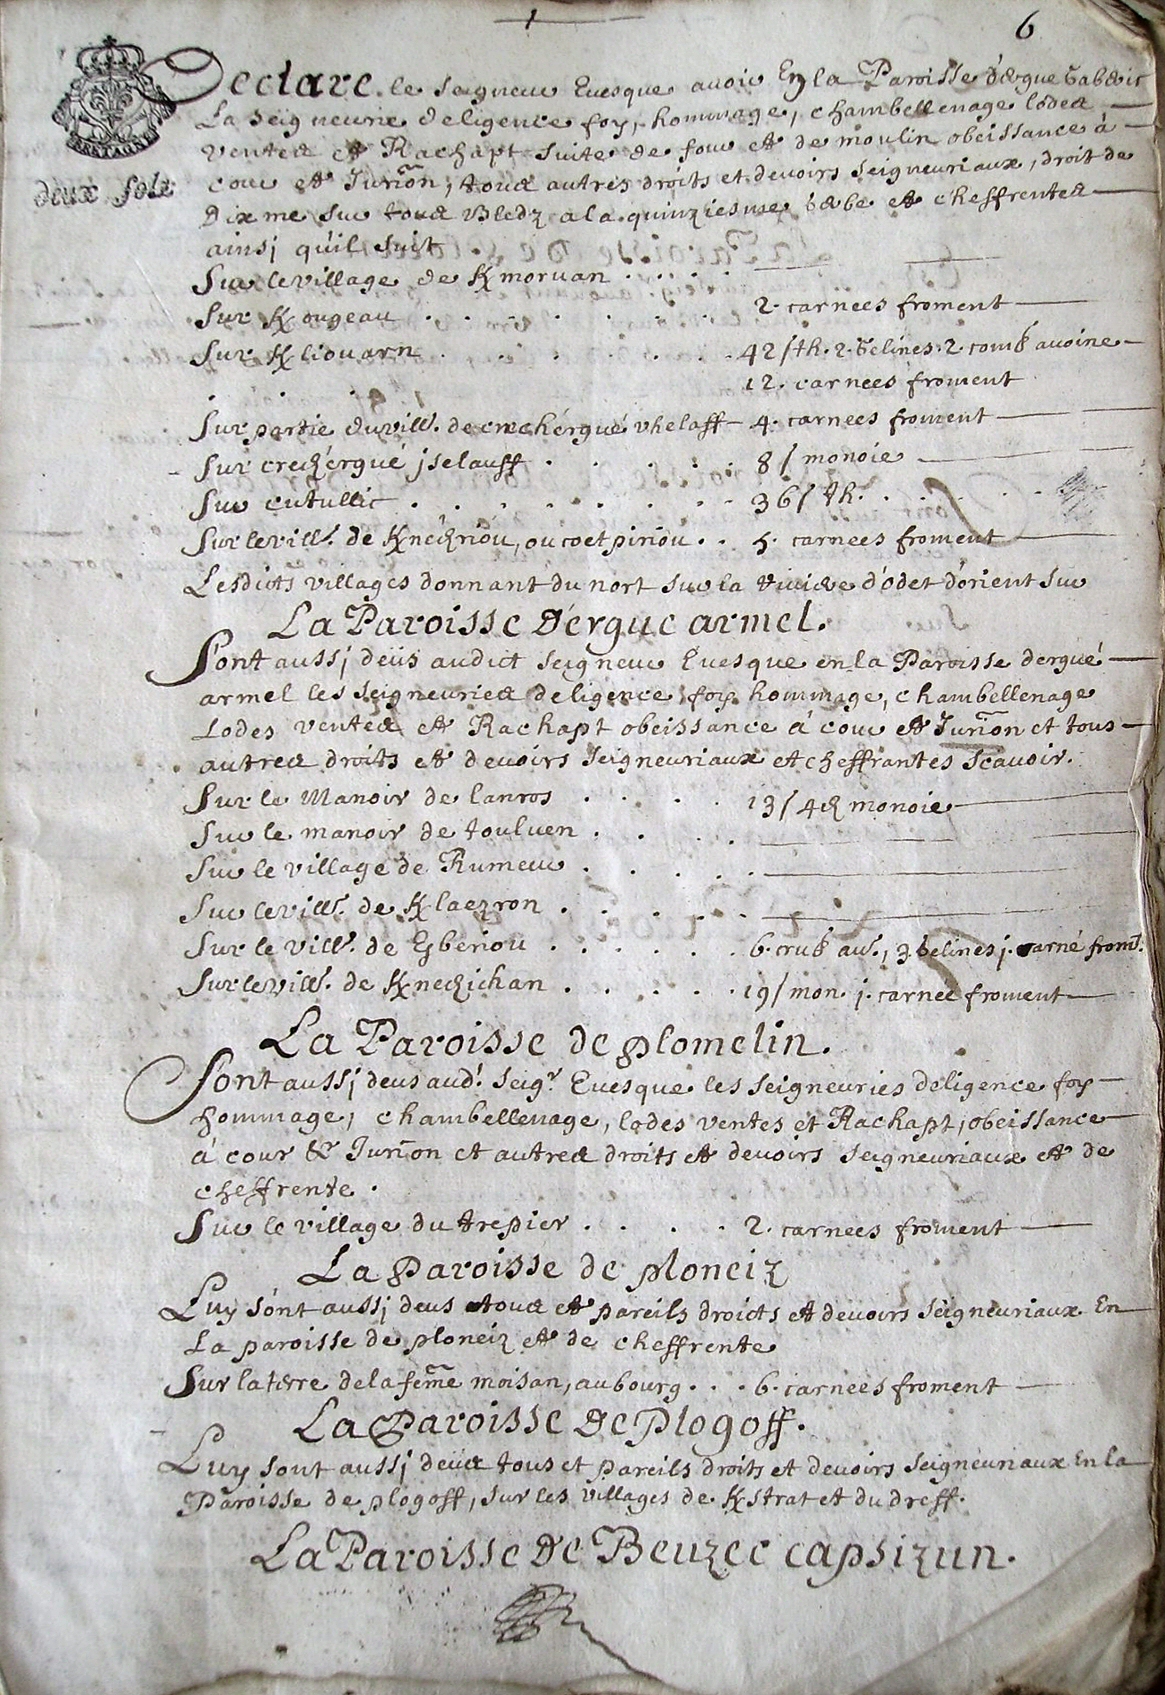 1 6
BRETAGNE
deux solz
Declare le seigneur Evesque avoir En la Paroisse d'Ergue Gaberic
La seigneurie de ligence foy, hommage, chambellenage lodes
ventes et Rachapt suite de four et de moulin obeissance à
cour et Jurion, tous autres droits et devoirs seigneuriaux, droit de
Dixme sur tous Bledz a la quinziesme gerbe et cheffrentes
ainsj qu'il suit
Sur le village de K/morvan . . . .
Sur K/ougeau . . . . . . . 2. carnees froment
Sur K/liouarn . . . . . . . 42 s th. 2. Gelines. 2. comb avoine
12. carnees froment
Sur partie du vill. de crechérgué vhelaff 4. carnees froment
Sur crechergué jselauff . . . . . 8 s monoie
Sur cutullic . . . . . . . 36 s th.
Sur le vill. de K/nechriou, ou coetpiriou . . 5. carnees froment
Lesdicts villages donnant du nort sur la riviere d'odet d'orient sur
La Paroisse D'ergue armel.
Sont aussj deüs audict seigneur Evesque en la Paroisse dergué
armel les seigneuries de ligence foy hommage, chambellenage
Lodes ventes et Rachapt obeissance á cour et Jurion et tous
autres droits et devoirs seigneuriaux et cheffrantes Scavoir.
Sur le Manoir de lanros . . . . 13 s 4 d monoie
Sur le manoir de toulven . . . .
Sur le village de Rumeur . . . . .
Sur le vill. de K/laezron . . . . .
Sur le vill. de Gberiou . . . . . 6. crub av., 3 Gelines j. carné from.
Sur le vill. de K/nechichan . . . . . 19 s mon. j. carnee froment
La Paroisse de plomelin.
Sont aussj deus aud. Seigr Evesque les seigneuries de ligence foy
hommage, chambellenage, lodes ventes et Rachapt, obeissance
á cour & Jurion et autres droits et devoirs seigneuriaux et de
cheffrente.
Sur le village du trepier . . . . 2. carnees froment
La paroisse de ploneiz
Luy sont aussj deus tous et pareils droicts et devoirs seigneuriaux En
La paroisse de ploneiz et de cheffrente
Sur la terre de la feme moisan, au bourg . . . 6. carnees froment
La Paroisse De Plogoff.
Luy sont aussj deüs tous et pareils droits et devoirs seigneuriaux En la
Paroisse de plogoff, sur les villages de K/strat et du dreff.
La Paroisse De Beuzec capsizun.